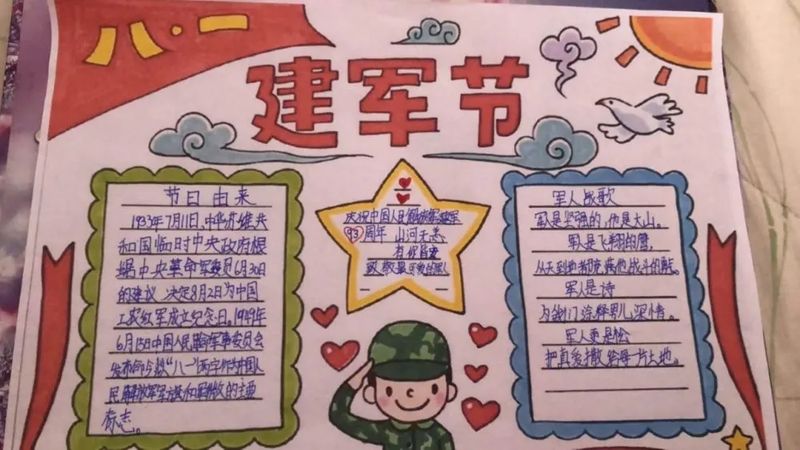 八·一
建军节
节日由来
1933年7月11日,中华苏维埃共
和国临时中央政府根
据中央革命军委员6月30日
的建议 决定8月1日为中国
工农红军成立纪念日。1949年
6月15日中国人民革命军事委员会
发布命令"八一"两字作为中国人
民解放军军旗和军徽的主要
标志。
庆祝中国人民解放军建军
93周年 山河无恙
有你皆安
致敬最可爱的人
军人战歌
军人是坚强的,他是大山。
军人是飞翔的鹰
军人是诗
军人更是松
把真爱撒给每一片土地。